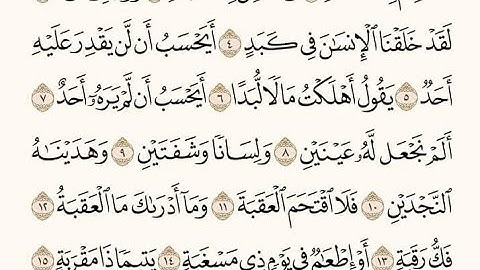 لَقَدْ خَلَقْنَا ٱلْإِنسَٰنَ فِى كَبَدٍ ٤ أَيَحْسَبُ أَن لَّن يَقْدِرَ عَلَيْهِ
أَحَدٌ ٥ يَقُولُ أَهْلَكْتُ مَالًا لُّبَدًا ٦ أَيَحْسَبُ أَن لَّمْ يَرَهُۥٓ أَحَدٌ ٧
أَلَمْ نَجْعَل لَّهُۥ عَيْنَيْنِ ٨ وَلِسَانًا وَشَفَتَيْنِ ٩ وَهَدَيْنَٰهُ
ٱلنَّجْدَيْنِ ١٠ فَلَا ٱقْتَحَمَ ٱلْعَقَبَةَ ١١ وَمَآ أَدْرَىٰكَ مَا ٱلْعَقَبَةُ ١٢
فَكُّ رَقَبَةٍ ١٣ أَوْ إِطْعَٰمٌ فِى يَوْمٍ ذِى مَسْغَبَةٍ ١٤ يَتِيمًا ذَا مَقْرَبَةٍ ١٥